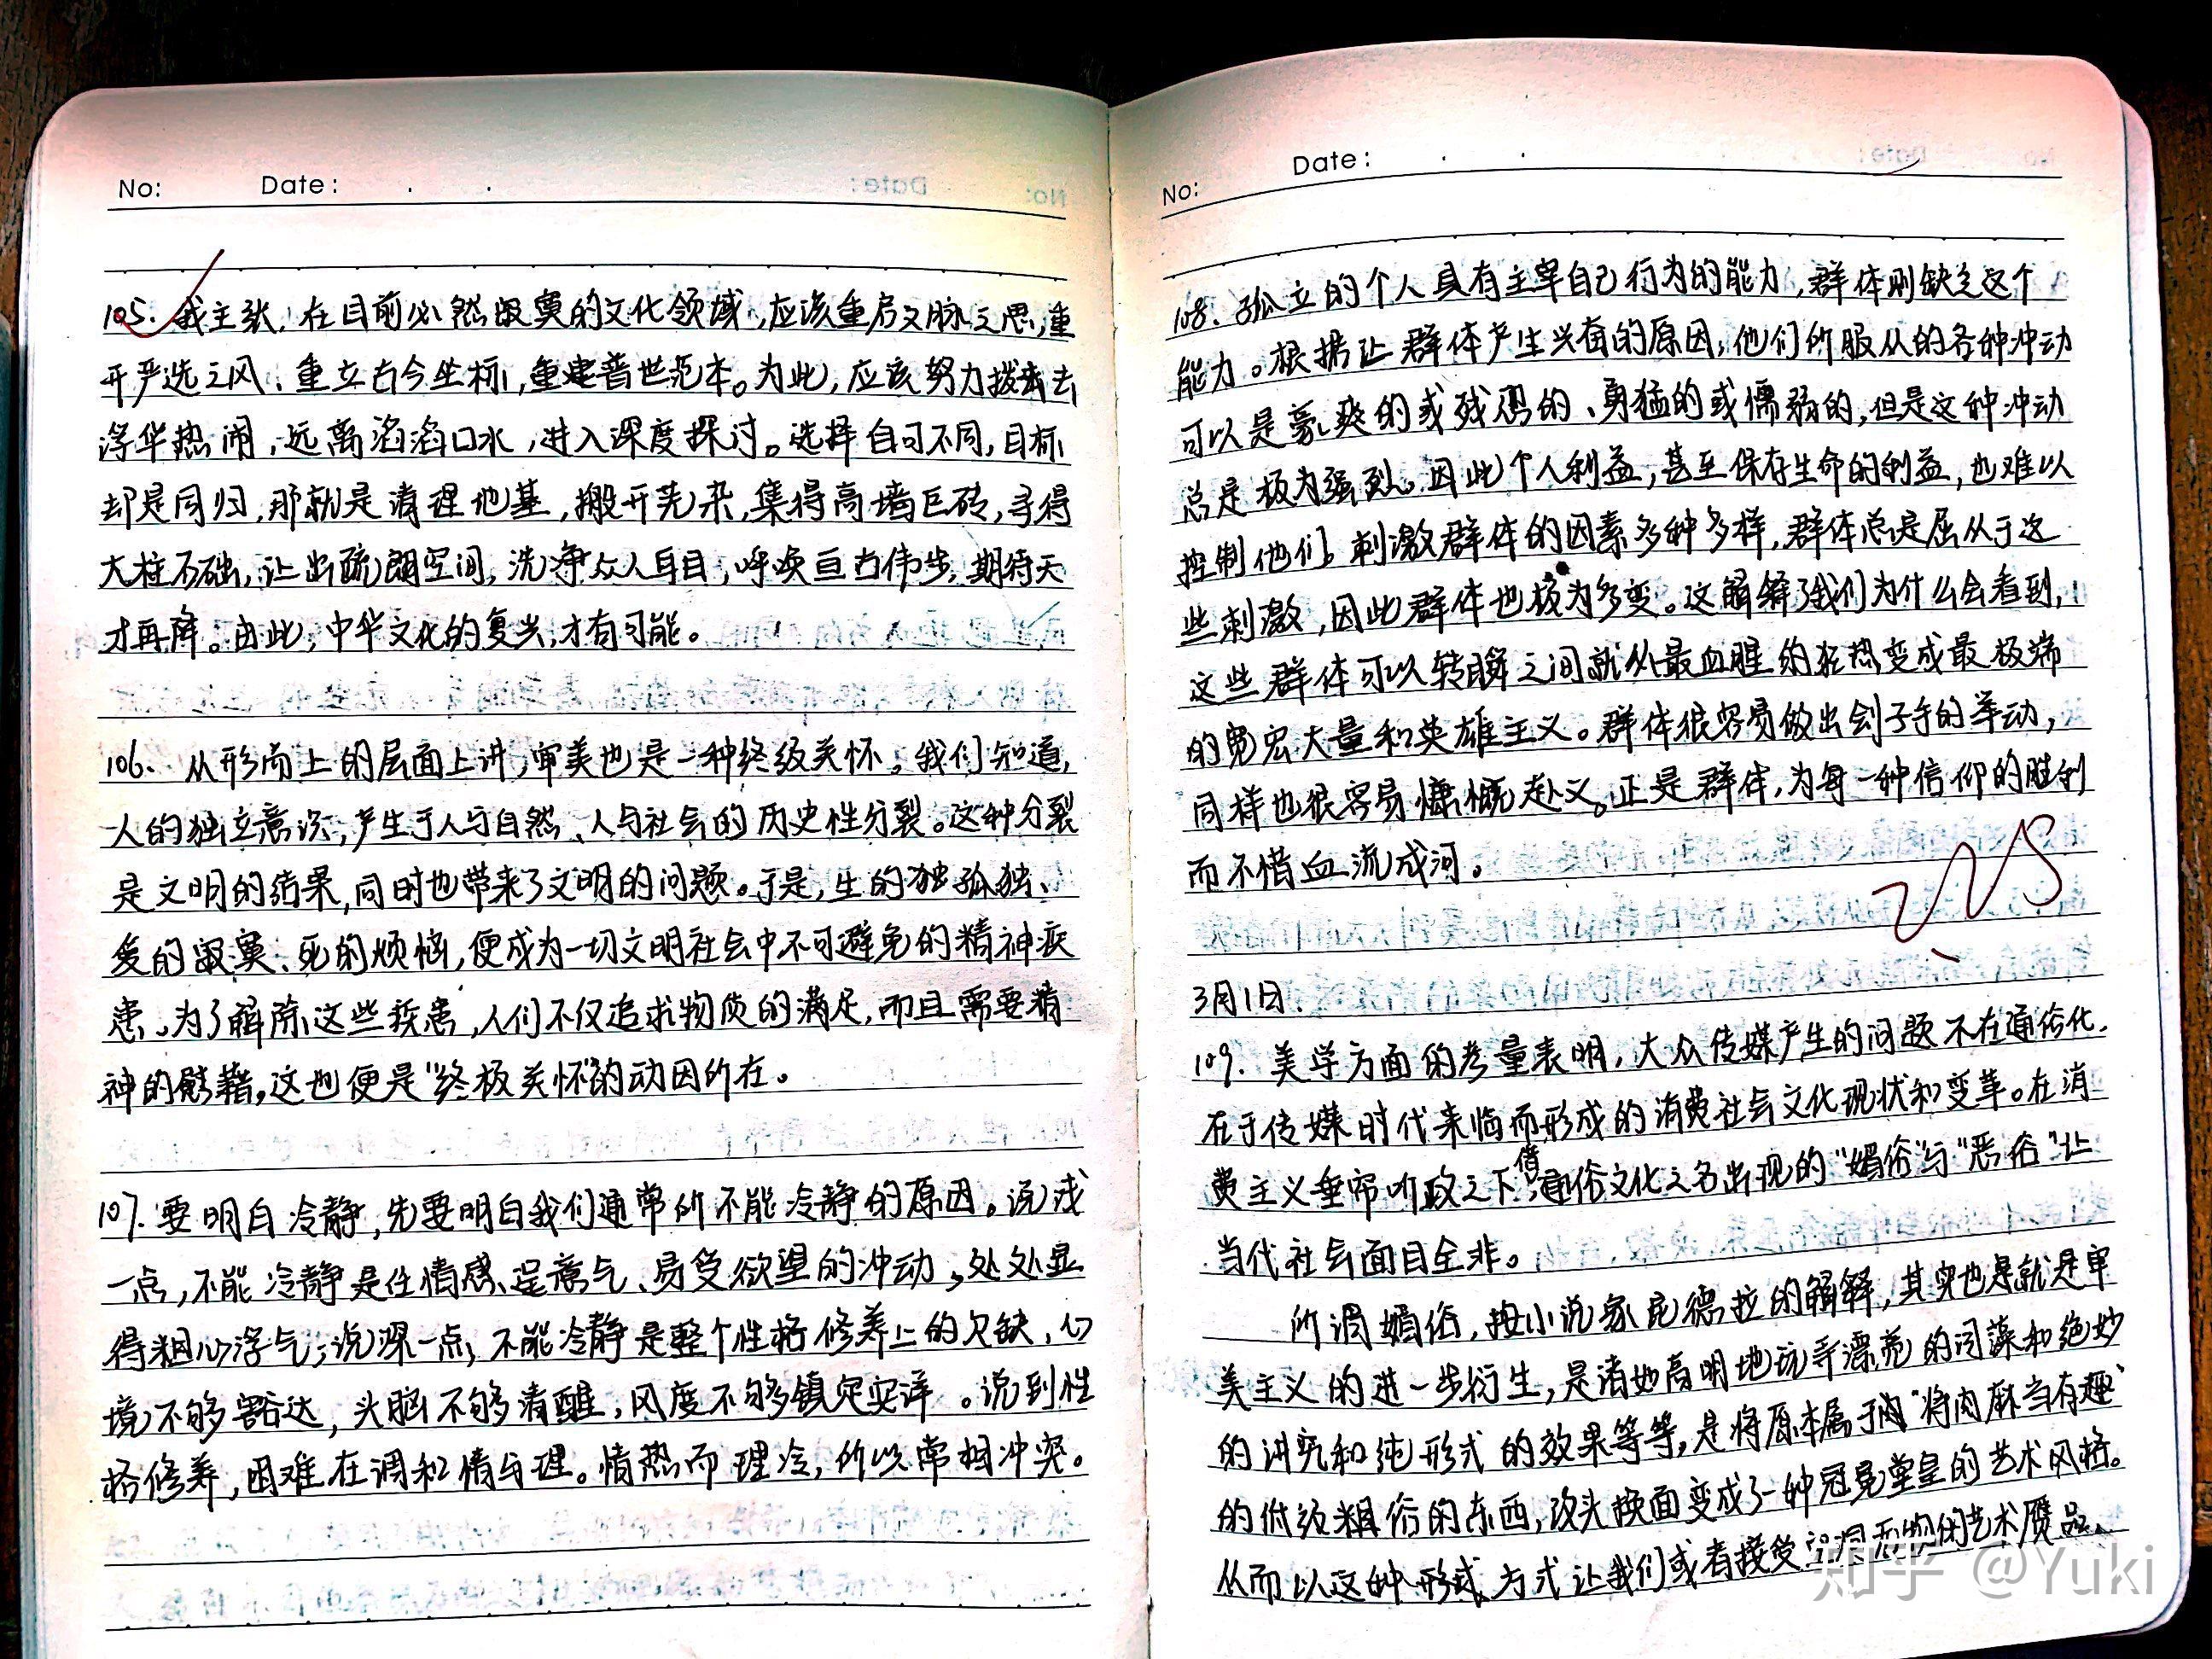 No:   Date:   .   .
105. 我主张,在目前必然寂寞的文化领域,应该重启文脉之思,重
开严选之风、重立古今坐标,重建普世范本。为此,应该努力拨去
浮华热闹,远离滔滔口水,进入深度探讨。选择自可不同,目标
却是同归,那就是清理地基,搬开芜杂,集得高墙巨砖,寻得
大柱石础,让出疏朗空间,洗净众人耳目,呼唤亘古伟步,期待天
才再降。由此,中华文化的复兴,才有可能。
106、从形而上的层面上讲,审美也是一种终级关怀。我们知道,
人的独立意识,产生于人与自然、人与社会的历史性分裂。这种分裂
是文明的结果,同时也带来了文明的问题。于是,生的独孤独、
爱的寂寞、死的烦恼,便成为一切文明社会中不可避免的精神疾
患。为了解除这些疾患,人们不仅追求物质的满足,而且需要精
神的慰藉。这也便是“终极关怀”的动因所在。
107.要明白冷静,先要明白我们通常所不能冷静的原因。说浅
一点,不能冷静是任情感、逞意气、易受欲望的冲动,处处显
得粗心浮气;说深一点,不能冷静是整个性格修养上的欠缺,心
境不够豁达,头脑不够清醒,风度不够镇定安详。说到性
格修养,困难在调和情与理。情热而理冷,所以常相冲突。
No:   Date:   .   .
108、孤立的个人具有主宰自己行为的能力,群体则缺乏这个
能力。根据让群体产生兴奋的原因,他们所服从的各种冲动
可以是豪爽的或残忍的、勇猛的或懦弱的,但是这种冲动
总是极为强烈。因此个人利益,甚至保存生命的利益,也难以
控制他们。刺激群体的因素多种多样,群体总是屈从于这
些刺激,因此群体也极为多变。这解释了我们为什么会看到,
这些群体可以转瞬之间就从最血腥的狂热变成最极端
的宽宏大量和英雄主义。群体很容易做出刽子手的举动,
同样也很容易慷慨赴义。正是群体,为每一种信仰的胜利
而不惜血流成河。
3月1日.
109. 美学方面的考量表明,大众传媒产生的问题不在通俗化,
在于传媒时代来临而形成的消费社会文化现状和变革。在消
费主义垂帘听政之下,借通俗文化之名出现的“媚俗”与“恶俗”让
当代社会面目全非。
所谓媚俗,按小说家昆德拉的解释,其实也是就是审
美主义的进一步衍生,是诸如高明地玩弄漂亮的词藻和绝妙
的讲究和纯形式的效果等等,是将原本属于肉“将肉麻当有趣”
的低级粗俗的东西,改头换面变成了一种冠冕堂皇的艺术风格。
从而以这种形式、方式让我们或者接受空洞无物的艺术赝品、
知乎 @Yuki